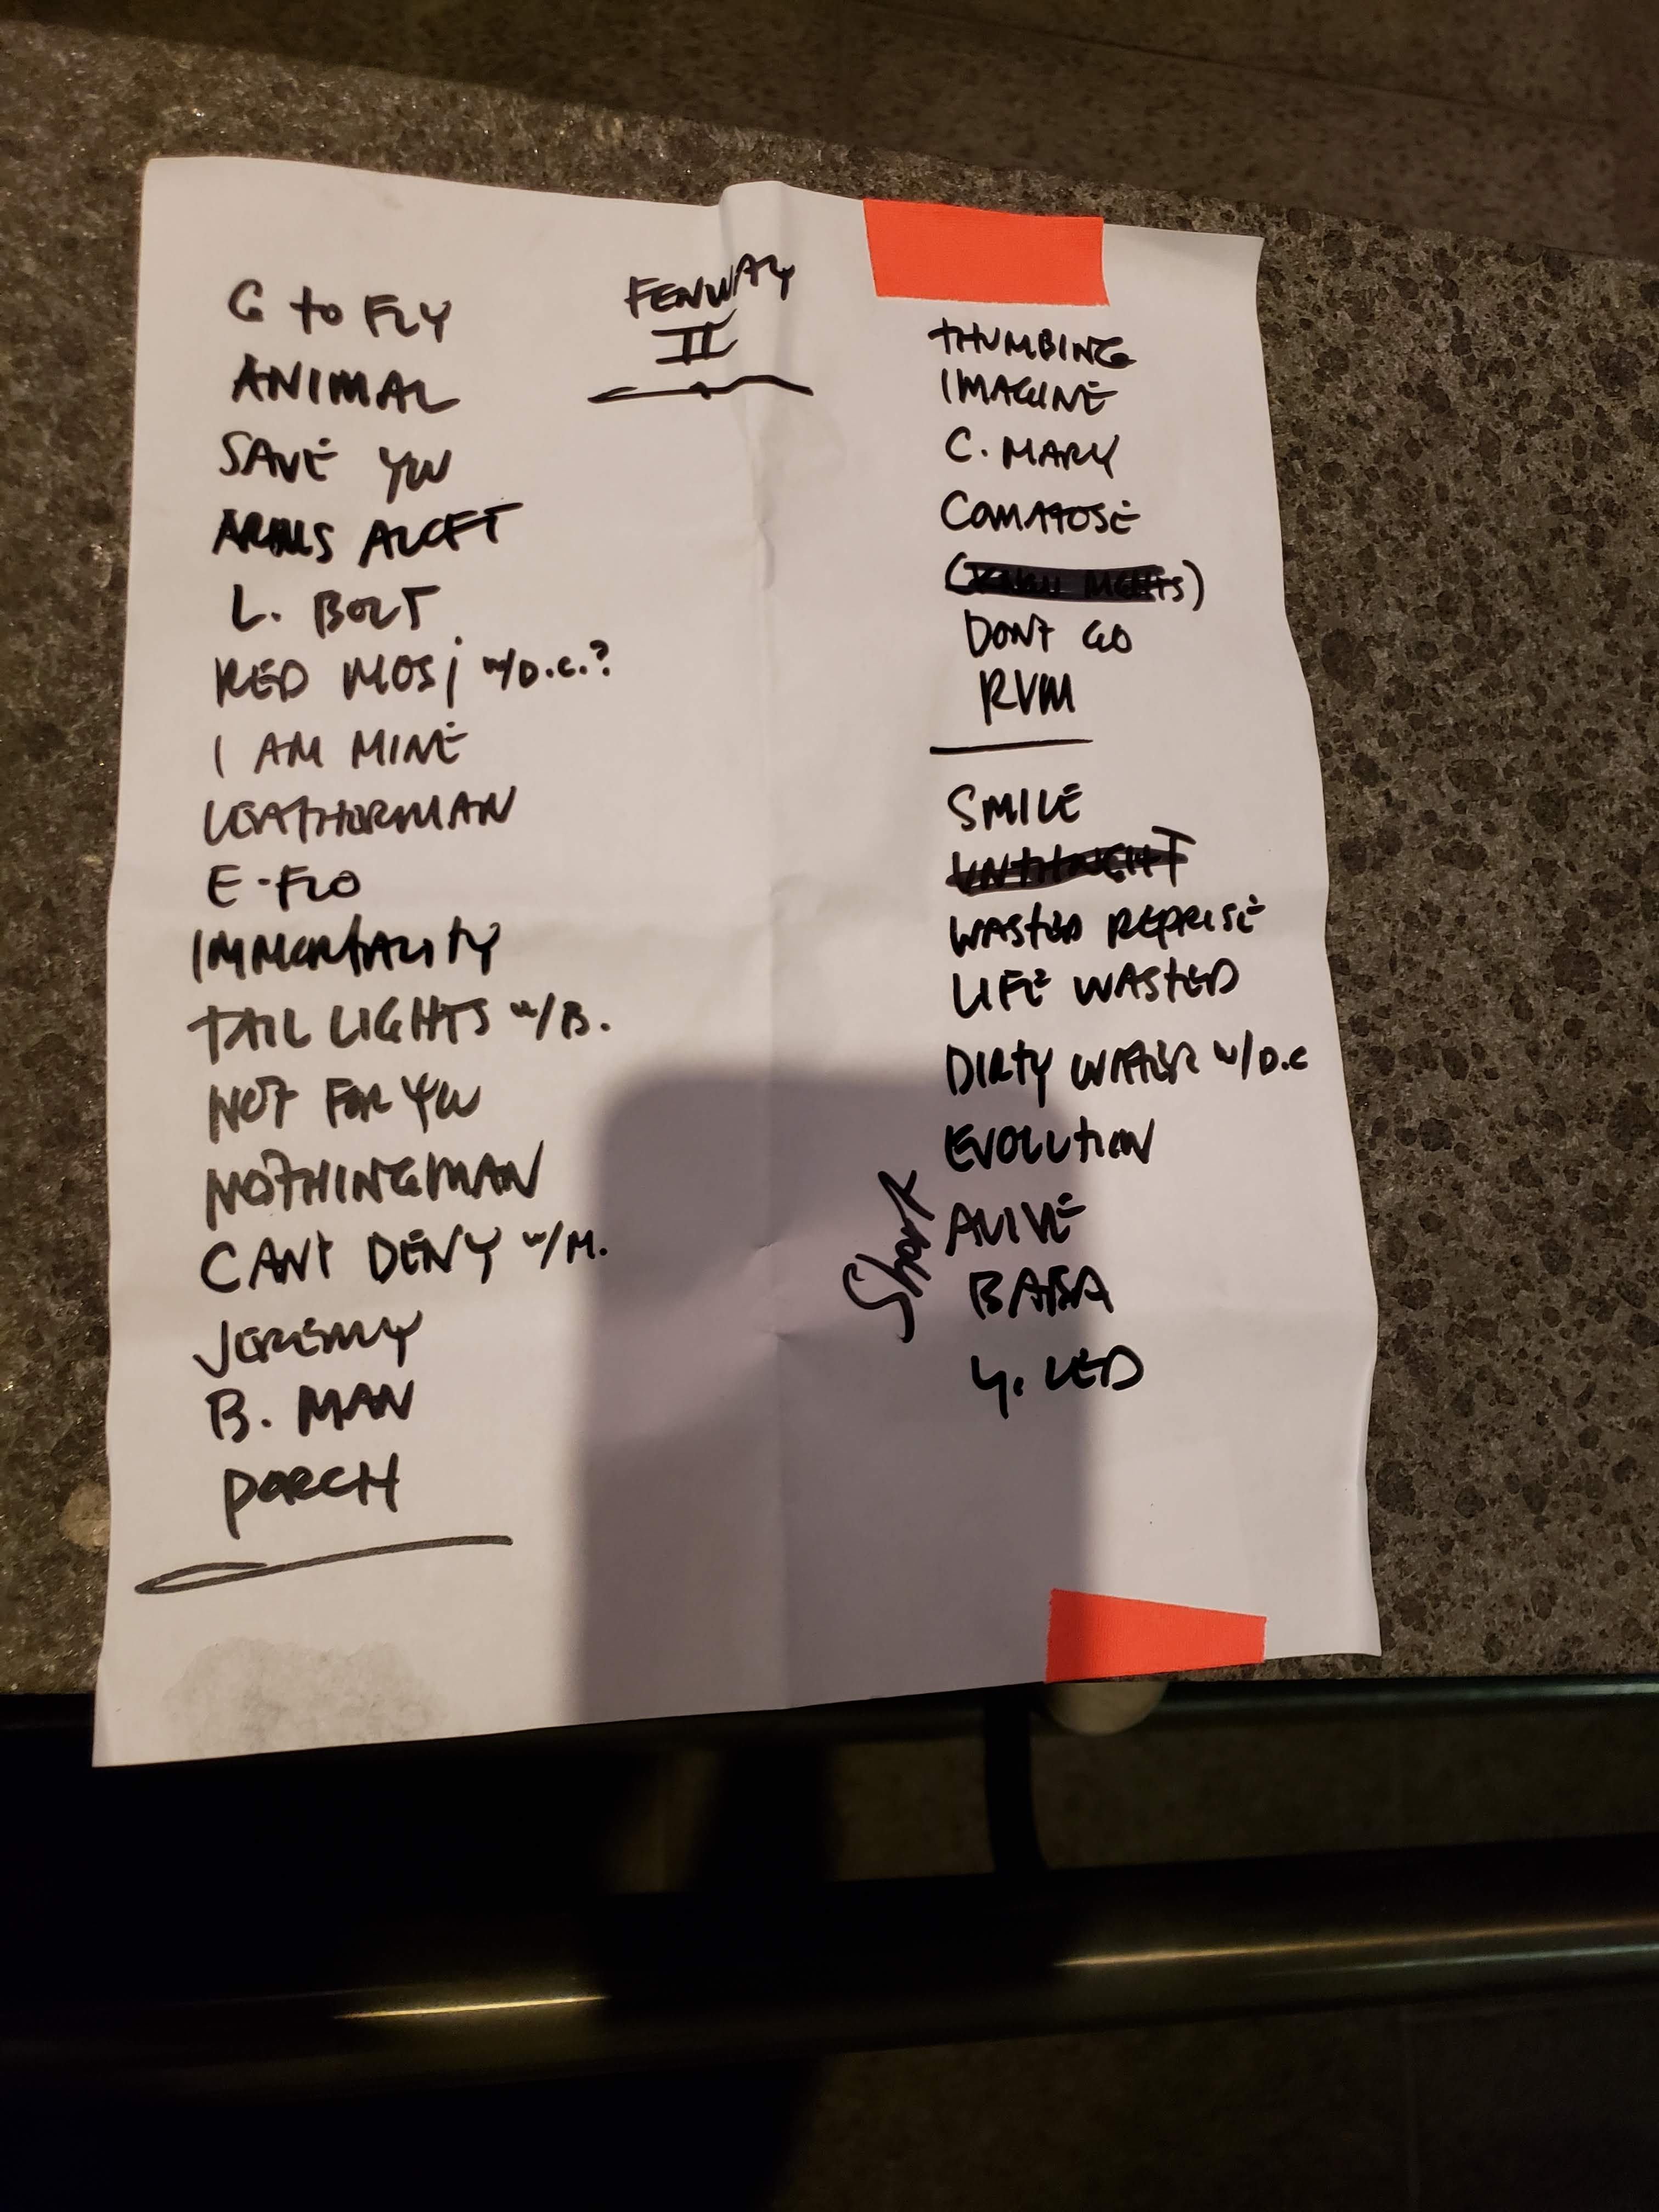 FENWAY
II
G to FLY
ANIMAL
SAVE YOU
ARMS ALOFT
L. BOLT
RED MOS; w/D.C.?
I AM MINE
LEATHERMAN
E-FLO
IMMORTALITY
TAIL LIGHTS w/B.
NOT FOR YOU
NOTHINGMAN
CANT DENY w/M.
JEREMY
B. MAN
PORCH
THUMBING
IMAGINE
C. MARY
COMATOSE
DONT GO
RVM
SMILE
UNTHOUGHT
WASTED REPRISE
LIFE WASTED
DIRTY WATER w/D.C
EVOLUTION
Short
ALIVE
BABA
Y. LED